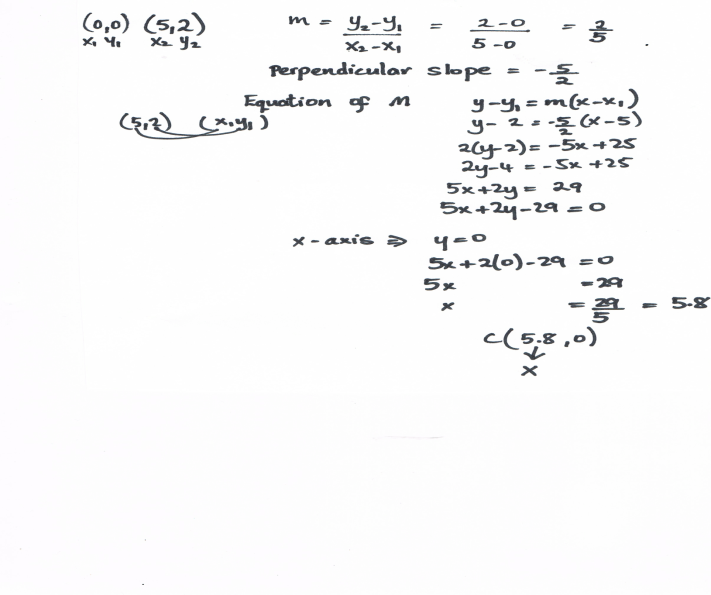 (0,0) (5,2) m = y₂-y₁ / x₂-x₁ = 2-0 / 5-0 = 2/5 .
x₁ y₁ x₂ y₂
Perpendicular slope = -5/2
Equation of M y-y₁ = m(x-x₁)
(5,2) (x₁,y₁) y- 2 = -5/2 (x-5)
2(y-2) = -5x +25
2y-4 = -5x +25
5x+2y = 29
5x+2y-29 = 0
x-axis ⇒ y=0
5x+2(0)-29 = 0
5x = 29
x = 29/5 = 5.8
C(5.8,0)
↓
x